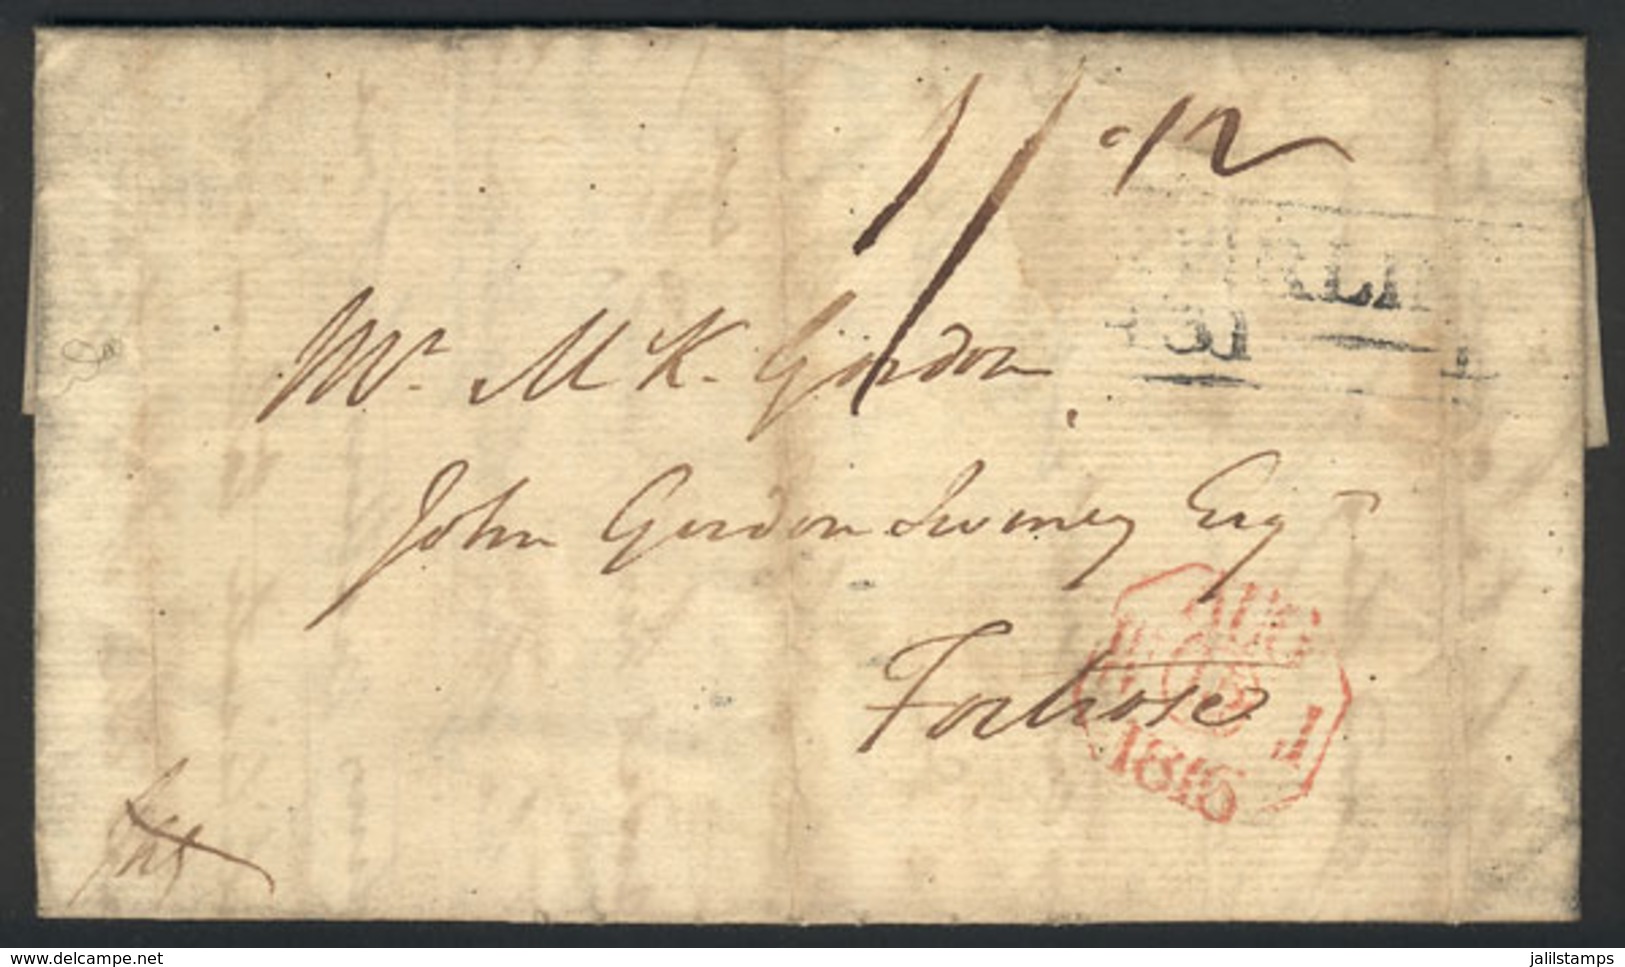 1/1
12
Mr. M K. Gordon
John Gordon Swiney Esqr
Fortrose
AUG
1
1815
www.delcampe.net
jalilstamps